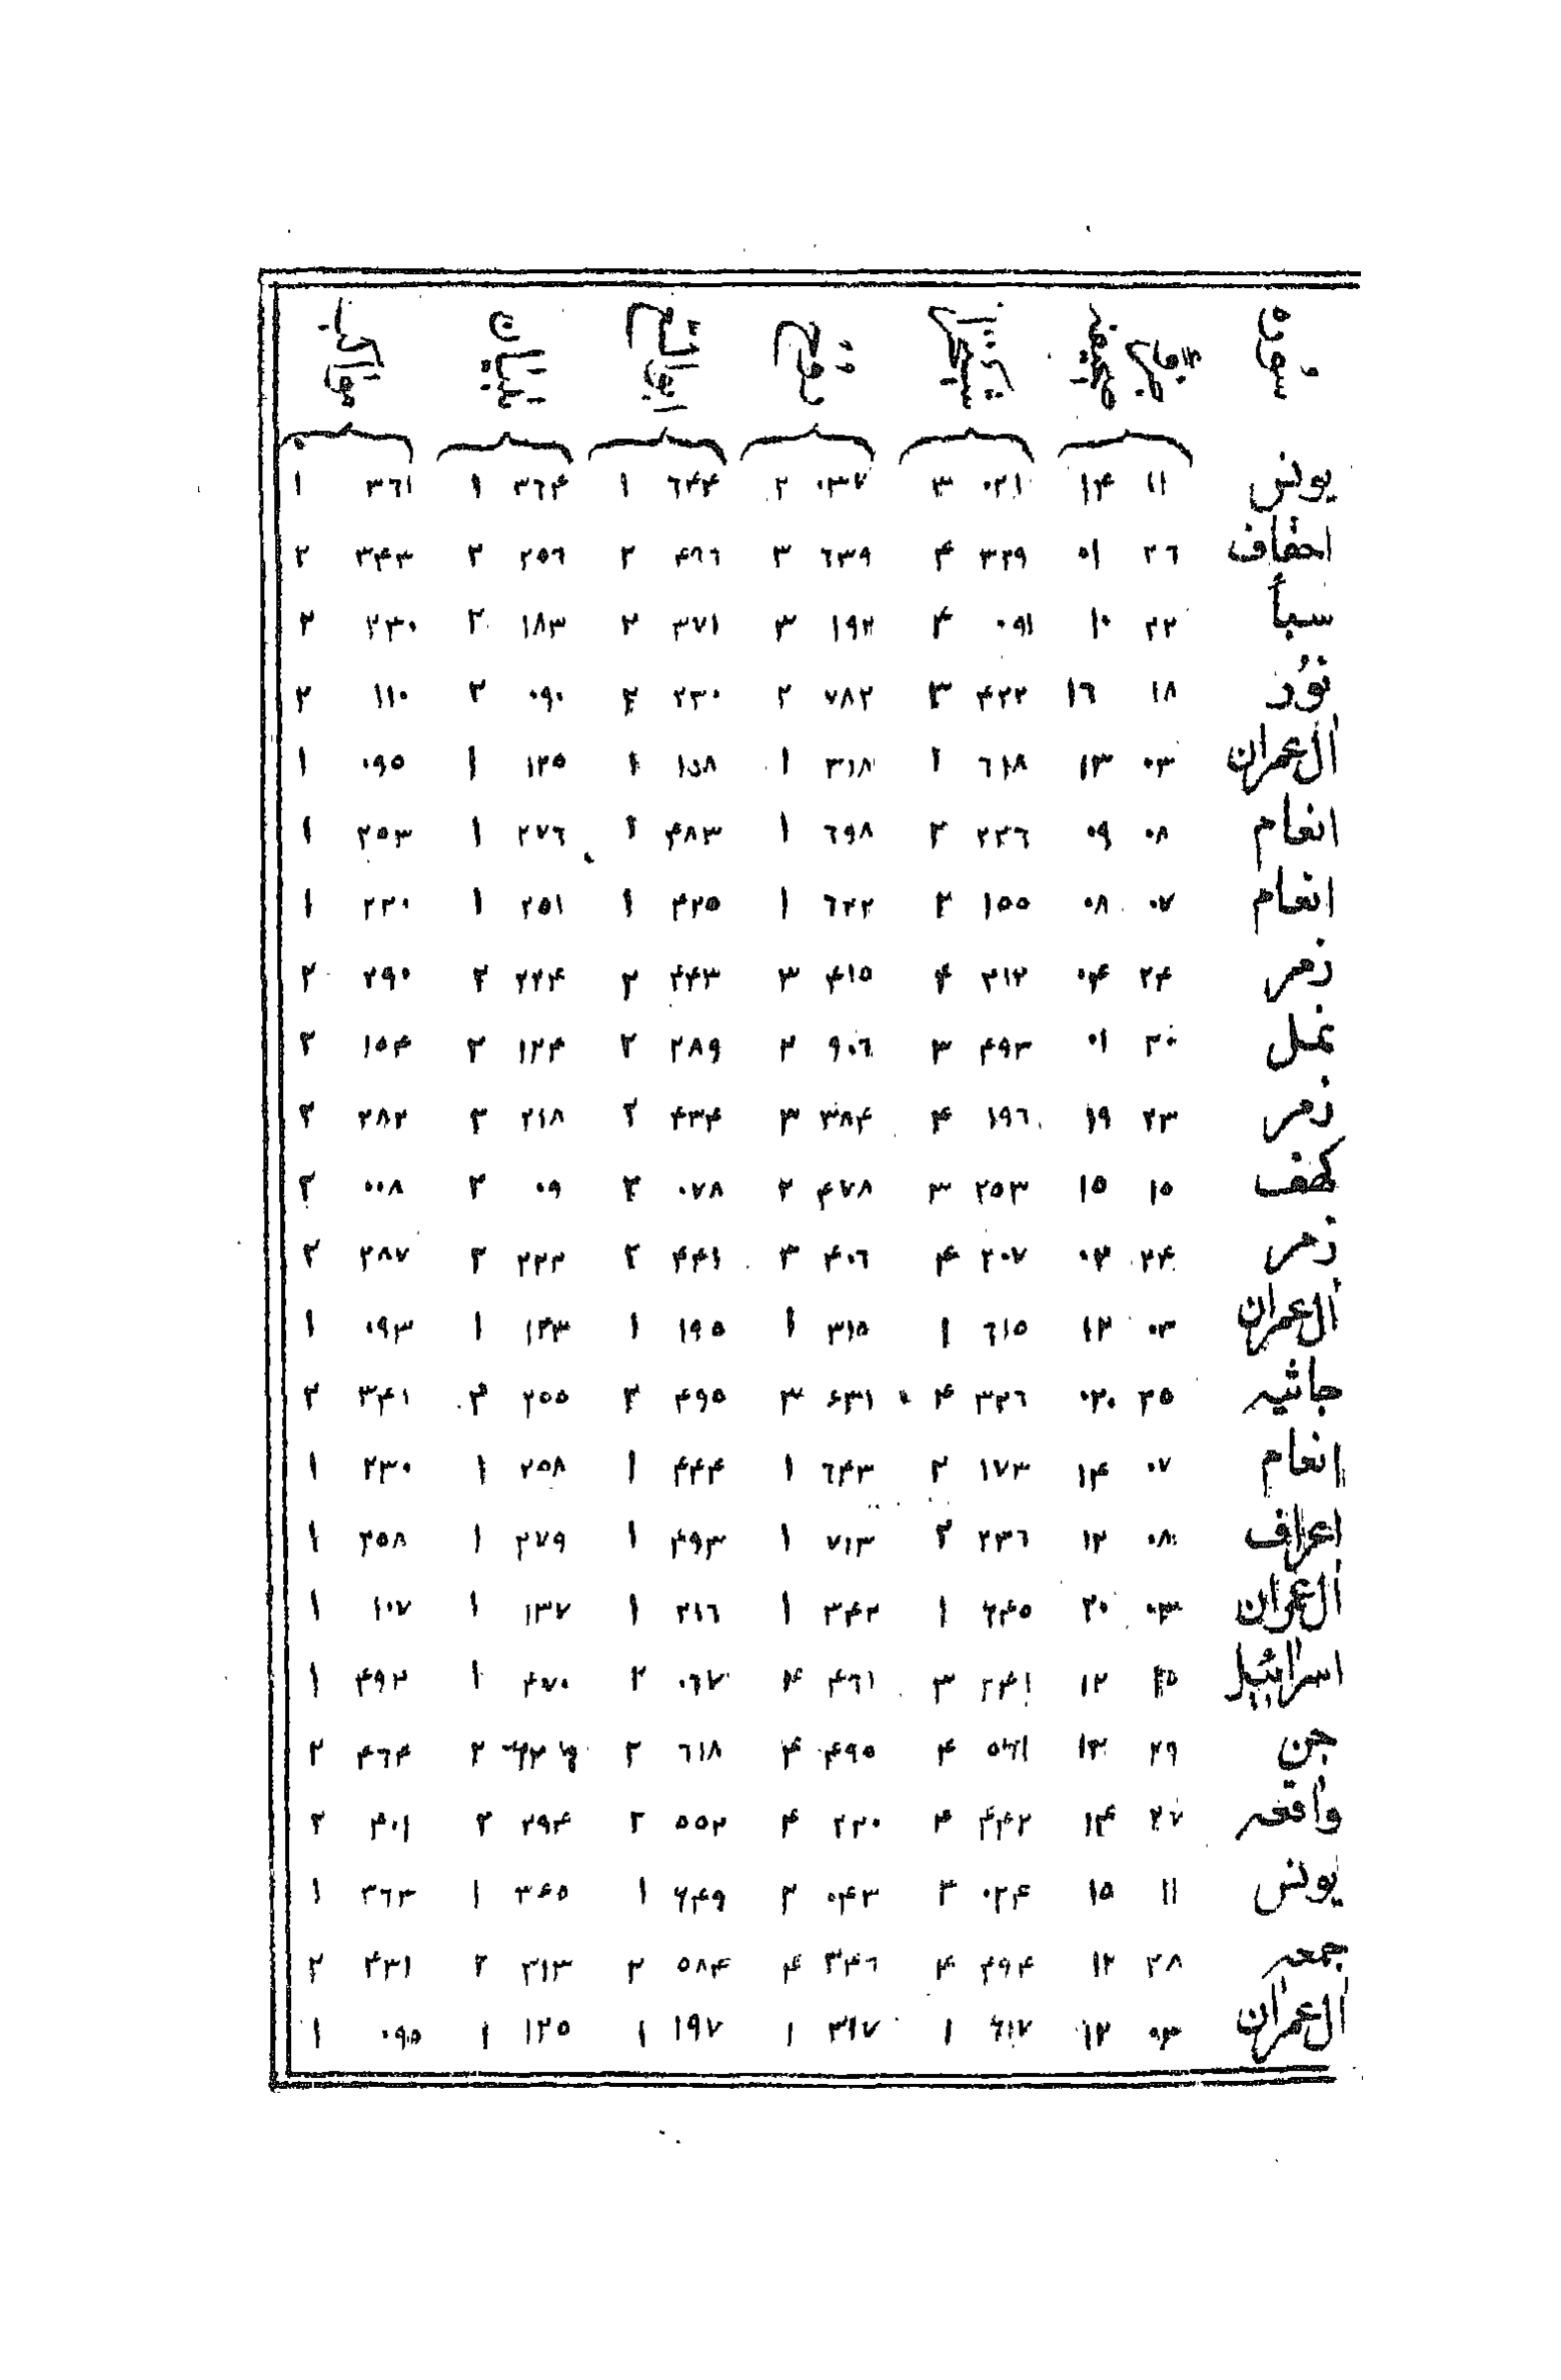 یونس ۱۱ ۱۴ ۰۲۱ ۳ ۰۳۷ ۲ ٦۴۴ ۱ ۳٦۴ ۱ ۳٦۱ ۱
احقاف ۲٦ ۰۱ ۳۲۹ ۴ ٦۳۹ ۳ ۴۹٦ ۲ ۲۵٦ ۲ ۳۴۳ ۲
سبأ ۲۲ ۱۰ ۰۹۱ ۴ ۱۹۲ ۳ ۳۷۱ ۲ ۱۸۳ ۲ ۲۳۰ ۲
نوُر ۱۸ ۱٦ ۴۲۲ ۳ ۷۸۲ ۲ ۲۳۰ ۲ ۰۹۰ ۲ ۱۱۰ ۲
اٰل عمران ۰۳ ۱۳ ٦۱۸ ۱ ۳۱۸ ۱ ۱ ۱۲۵ ۱ ۰۹۵ ۱
انعام ۰۸ ۰۹ ۲۳٦ ۲ ٦۹۸ ۱ ۴۸۳ ۱ ۲۷٦ ۱ ۲۵۳ ۱
انعام ۰۷ ۰۸ ۱۵۵ ۲ ٦۲۲ ۱ ۴۲۵ ۱ ۲۵۱ ۱ ۲۲۰ ۱
زمر ۲۴ ۰۴ ۲۱۲ ۴ ۴۱۵ ۳ ۴۴۳ ۲ ۲۲۴ ۲ ۲۹۰ ۲
نمل ۲۰ ۰۱ ۴۹۳ ۳ ۹۰٦ ۲ ۲۸۹ ۲ ۱۲۴ ۲ ۱۵۴ ۲
زمر ۲۳ ۱۹ ۱۹٦ ۴ ۳۸۴ ۳ ۴۳۴ ۲ ۲۱۸ ۲ ۲۸۲ ۲
کہف ۱۵ ۱۵ ۲۵۳ ۳ ۴۷۸ ۲ ۰۷۸ ۲ ۰۹ ۲ ۰۰۸ ۲
زمر ۲۴ ۰۳ ۲۰۷ ۴ ۴۰٦ ۳ ۴۴۱ ۲ ۲۲۲ ۲ ۲۸۷ ۲
اٰل عمران ۰۳ ۱۲ ٦۱۵ ۱ ۳۱۵ ۱ ۱۹۵ ۱ ۱۲۳ ۱ ۰۹۳ ۱
جاثیہ ۲۵ ۲۰ ۳۲٦ ۴ ۶۳۱ ۳ ۴۹۵ ۲ ۲۵۵ ۲ ۳۴۱ ۲
انعام ۰۷ ۱۴ ۱۷۳ ۲ ٦۴۳ ۱ ۴۴۴ ۱ ۲۵۸ ۱ ۲۳۰ ۱
اعراف ۰۸ ۱۲ ۲۳٦ ۲ ۷۱۳ ۱ ۴۹۳ ۱ ۲۷۹ ۱ ۲۵۸ ۱
اٰل عمران ۰۳ ۲۰ ۶۴۵ ۱ ۳۴۲ ۱ ۲۱٦ ۱ ۱۳۷ ۱ ۱۰۷ ۱
اسرائیل ۱۵ ۱۲ ۲۴۱ ۳ ۴٦۱ ۲ ۰٦۷ ۲ ۴۷۰ ۱ ۴۹۲ ۱
جن ۲۹ ۱۲ ۵٦۱ ۴ ۴۹۵ ۴ ٦۱۸ ۲ ۲ ۴٦۴ ۲
واقعہ ۲۷ ۱۴ ۴۴۲ ۴ ۲۲۰ ۴ ۵۵۲ ۲ ۲۹۴ ۲ ۴۰۱ ۲
یونس ۱۱ ۱۵ ۰۲۴ ۳ ۰۴۳ ۲ ۶۴۹ ۱ ۳۶۵ ۱ ۳٦۳ ۱
جمعہ ۲۸ ۱۲ ۴۹۴ ۴ ۳۴٦ ۴ ۵۸۴ ۲ ۳۱۳ ۲ ۴۳۱ ۲
اٰل عمران ۰۳ ۱۲ ۶۱۷ ۱ ۳۱۷ ۱ ۱۹۷ ۱ ۱۲۵ ۱ ۰۹۵ ۱